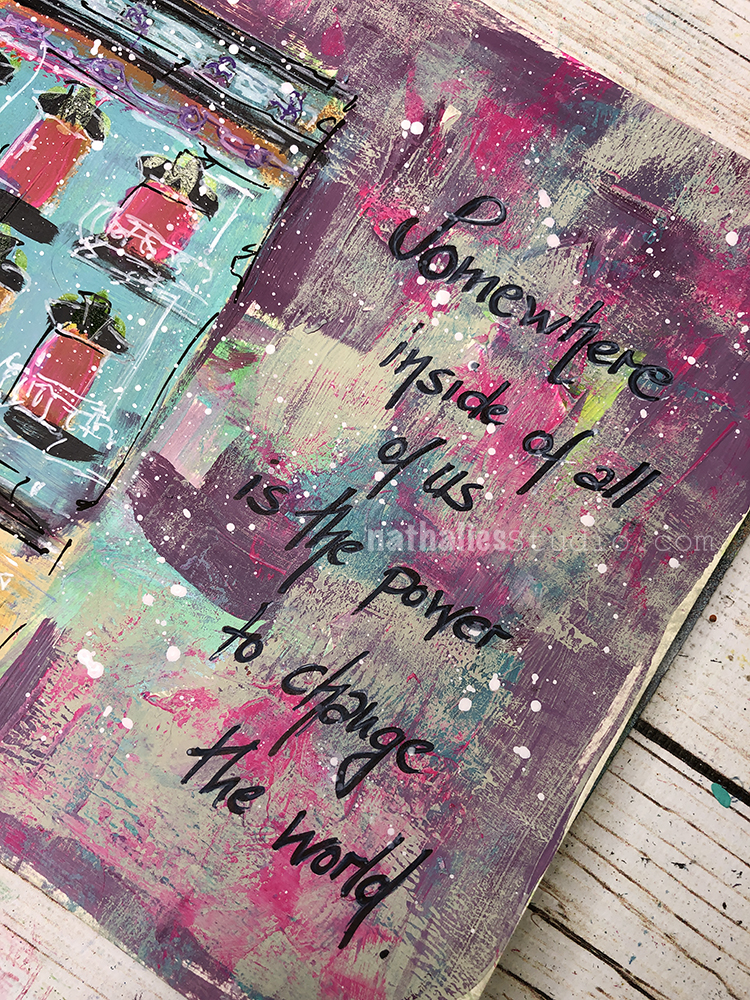 Somewhere
inside of all
of us
is the power
nathaliesstudio.com
to change
the world.